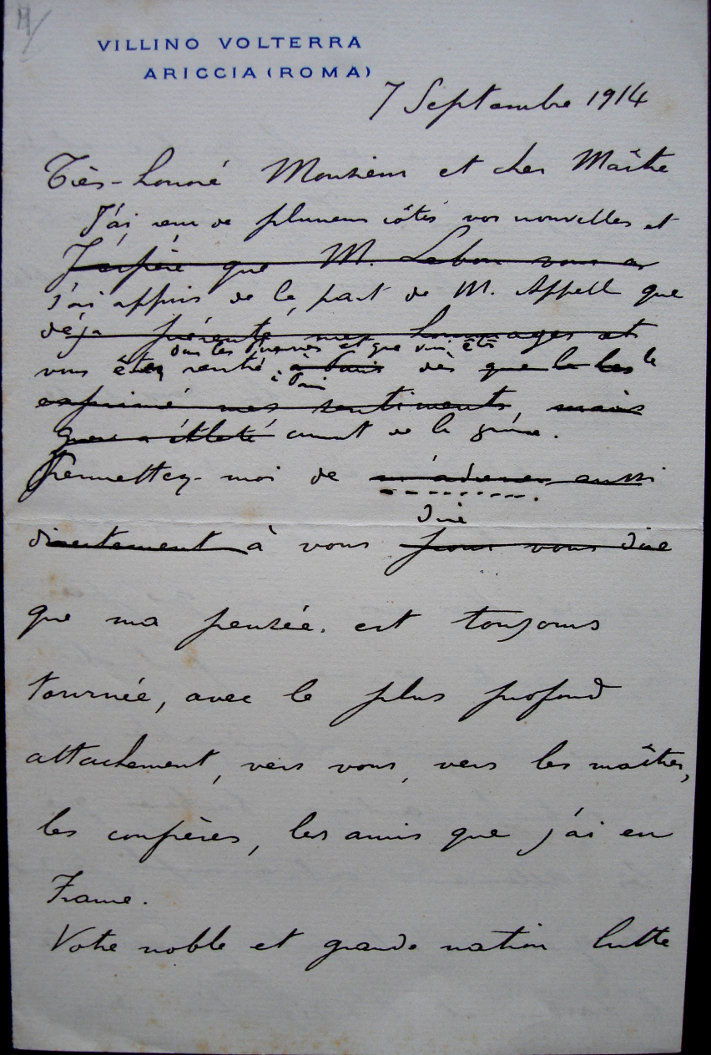 VILLINO VOLTERRA
ARICCIA (ROMA)
7 Septembre 1914
Très-honoré Monsieur et cher Maître
J'ai eu de plusieurs côtés vos nouvelles et
J'espère que M. Lebon vous a
j'ai appris de la part de M. Appell que
déjà présenté mes hommages et
dans les Pyrénées et que vous êtes
vous étiez rentré à Paris dès que le
à Paris
exprimé mes sentiments, mais
commencement de la guerre.
Permettez-moi de m'adresser aussi
dire
directement à vous pour vous dire
que ma pensée est toujours
tournée, avec le plus profond
attachement, vers vous, vers les maîtres,
les confrères, les amis que j'ai en
France.
Votre noble et grande nation lutte